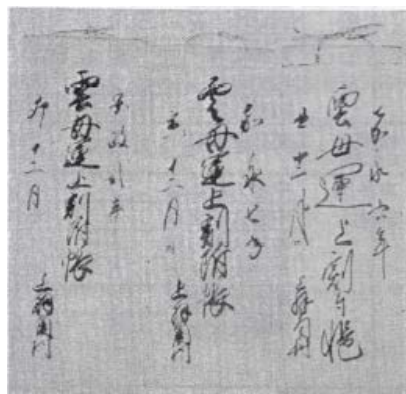 嘉永六年
雲母運上割付帳
丑十二月
嘉永七年
雲母運上割附帳
寅十二月
安政二年
雲母運上割附帳
卯十二月